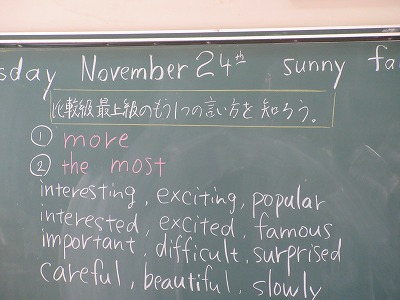 sday November 24th sunny fa
比較級最上級のもう1つの言い方を知ろう。
① more
② the most
interesting, exciting, popular
interested, excited, famous
important, difficult, surprised
careful, beautiful, slowly